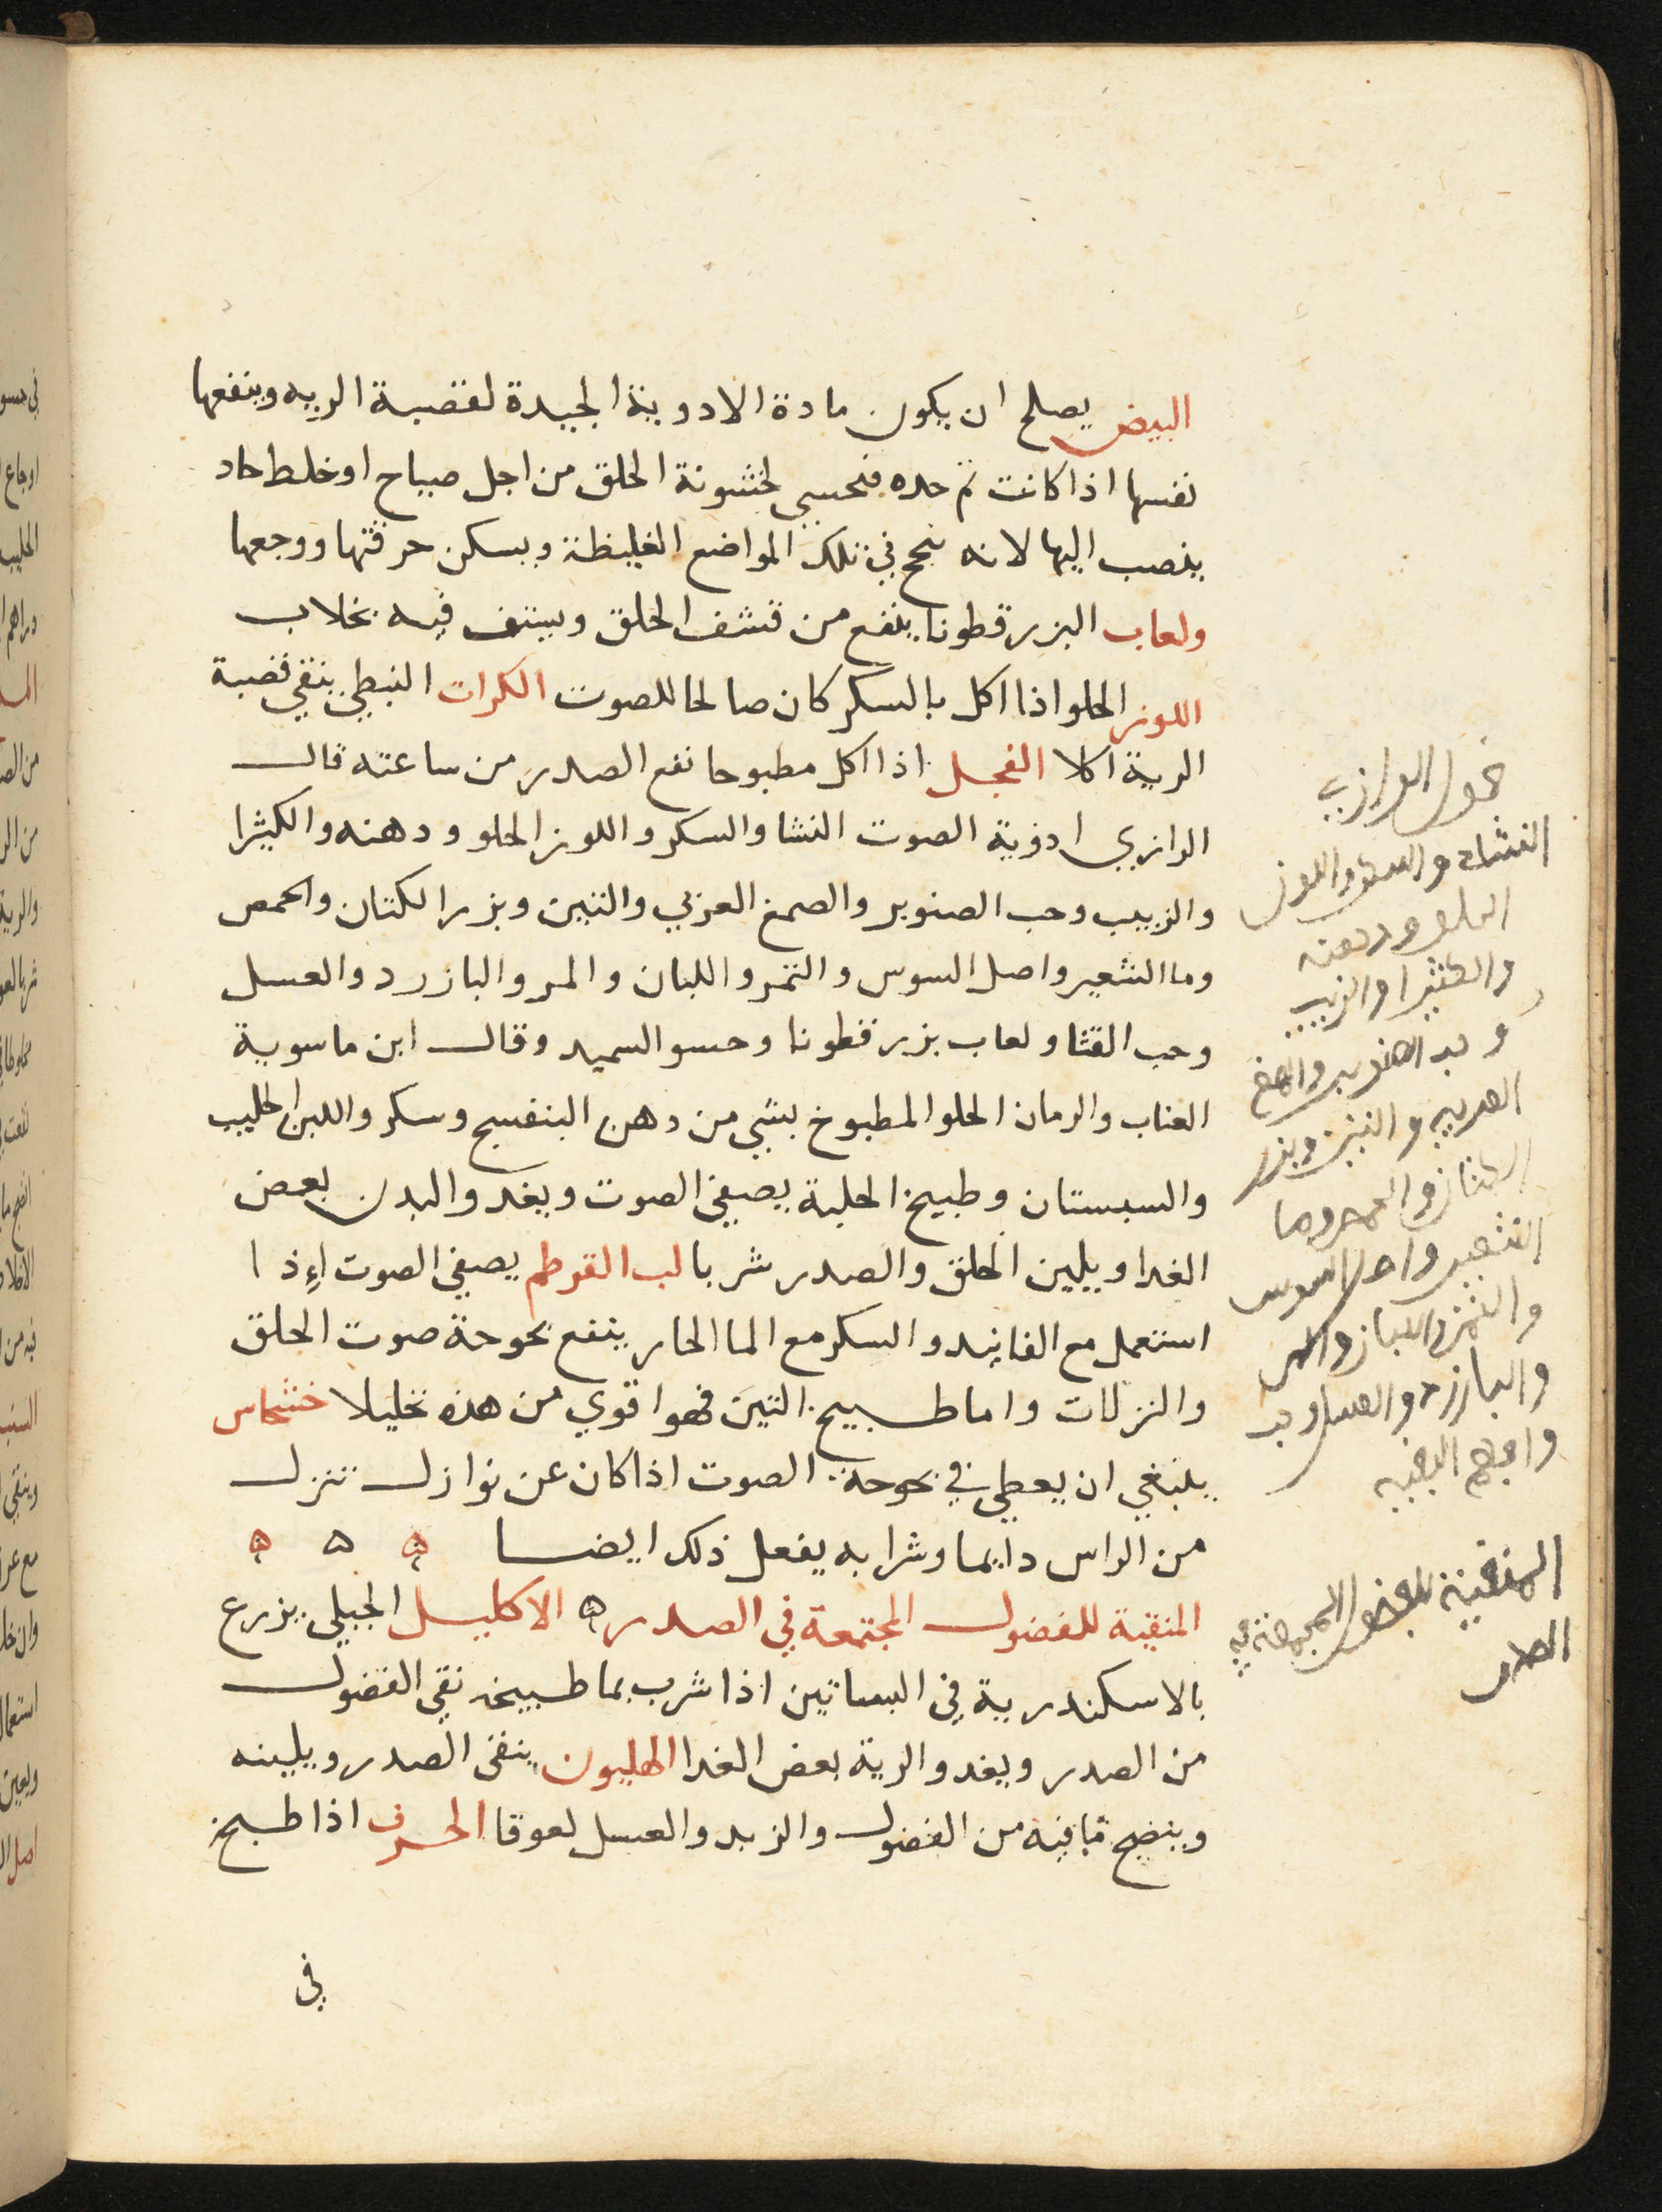 البيض يصلح ان يكون مادة الادوية الجيدة لقصبة الريه وينفعها
نفسها اذا كانت ثم حده فتحسى لخشونة الحلق من اجل صياح او خلط حاد
ينصب اليها لانه ينجح في تلك المواضع الغليظة ويسكن حرقتها ووجعها
ولعاب البزرقطونا ينفع من قشف الحلق ويستف فيه بخلاب
اللوز الحلو اذا اكل بالسكر كان صالحا للصوت الكرات النبطي ينقي قصبة
الرية اكلا الفجل اذا اكل مطبوخا نفع الصدر من ساعته قال
الرازي ادوية الصوت النشا والسكر واللوز الحلو ودهنه والكثيرا
والزبيب وحب الصنوبر والصمغ العربي والتين وبزر الكتان والحمص
وما الشعير واصل السوس والتمر واللبان والمر والبازرد والعسل
وحب القثا ولعاب بزر قطونا وحسو السميد وقال ابن ماسوية
العناب والرمان الحلو المطبوخ بشي من دهن البنفسج وسكر واللبن الحليب
والسبستان وطبيخ الحلبة يصفي الصوت ويغدو البدن بعض
الغدا ويلين الحلق والصدر شربا لب القرطم يصفي الصوت اذا
استعمل مع الفانيد والسكر مع الما الحار ينفع بحوحة صوت الحلق
والنزلات واما طبيخ التين فهوا قوي من هذه تحليلا خشخاس
ينبغي ان يعطي في بحوحة الصوت اذا كان عن نوازل تنزل
من الراس دايما وشرابه يفعل ذلك ايضا ه ه ه
المنقية للفضول المجتمعة في الصدر ه الاكليل الجبلي يزرع
بالاسكندرية في البساتين اذا شرب بما طبيخه نقي الفضول
من الصدر ويغدو الرية بعض الغدا الهليون ينقي الصدر ويلينه
وينضج ما فيه من الفضول والزبد والعسل لعوقا الحرف اذا طبخ
في
الرازي
النشاء والسكر واللوز
الحلو ودهنه
والكثيرا والزبيب
وحب الصنوبر والصمغ
العربي والتين وبزر
الكتان والحمص وما
الشعير واصل السوس
والتمر واللبان والمر
والبازرد والعسل وحب
المنقية للفضول المجتمعة في
الصدر